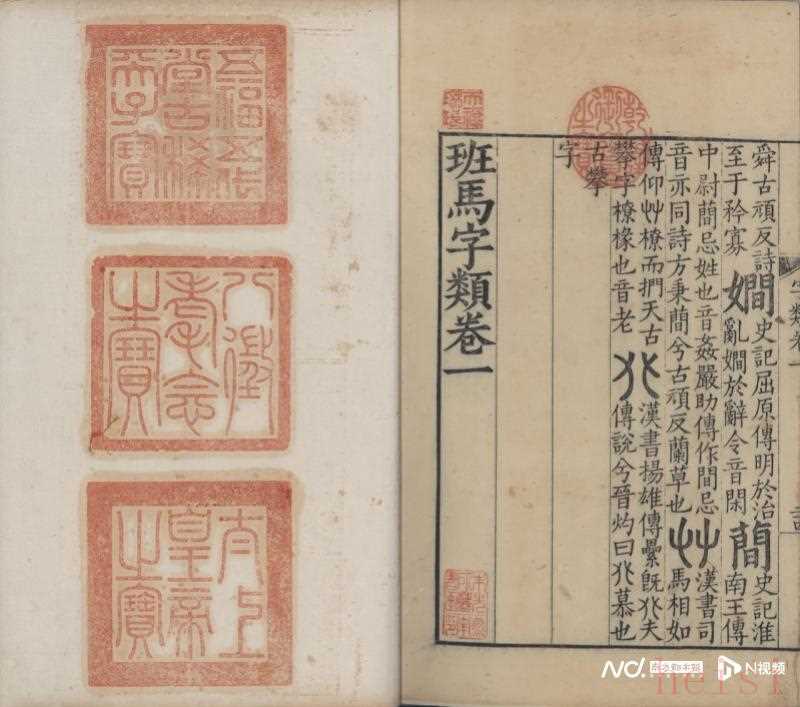 五福五代
堂古稀
天子寶
八徵
耄念
之寶
太上
皇帝
之寶
乾隆御覽之寶
天祿琳琅
字類卷一
舜古頑反詩
至于矜寡
嫺
史記屈原傳明於治
亂嫺於辭令音閑
蕑
史記淮
南王傳
中尉蕑忌姓也音姦嚴助傳作間忌
音亦同詩方秉蕑兮古頑反蘭草也
艸
漢書司
馬相如
傳仰艸橑而捫天古
攀字橑椽也音老
𠔁
漢書揚雄傳纍既𠔁夫
傳說兮晉灼曰𠔁慕也
古攀
字
班馬字類卷一
N视频